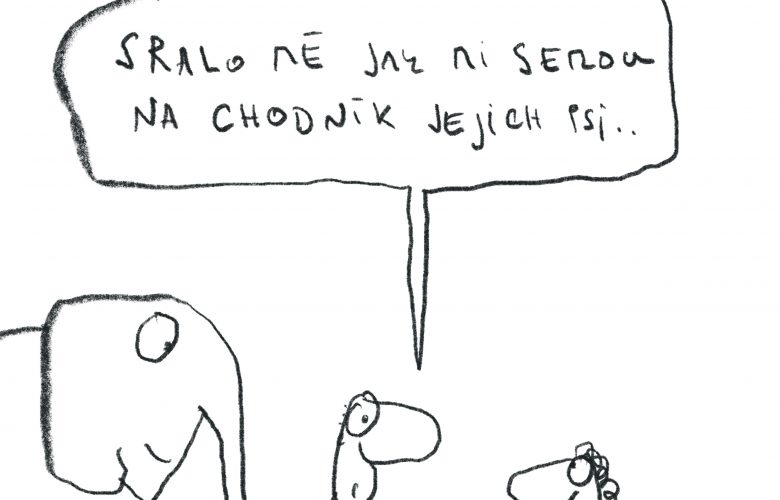 SRALO MĚ JAK MI SEROU
NA CHODNÍK JEJICH PSI..